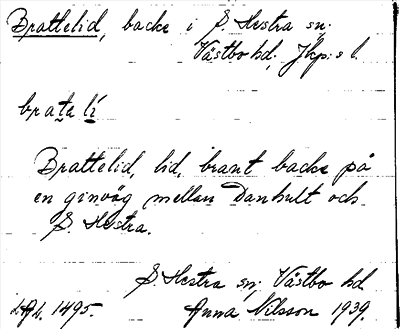 Brattelid, backe i S. Hestra sn;
Västbo hd; Jkp:s l.
brata lí
Brattelid, lid, brant backe på
en ginväg mellan Danhult och
S. Hestra.
S. Hestra sn; Västbo hd
1495. Anna Nilsson 1939.